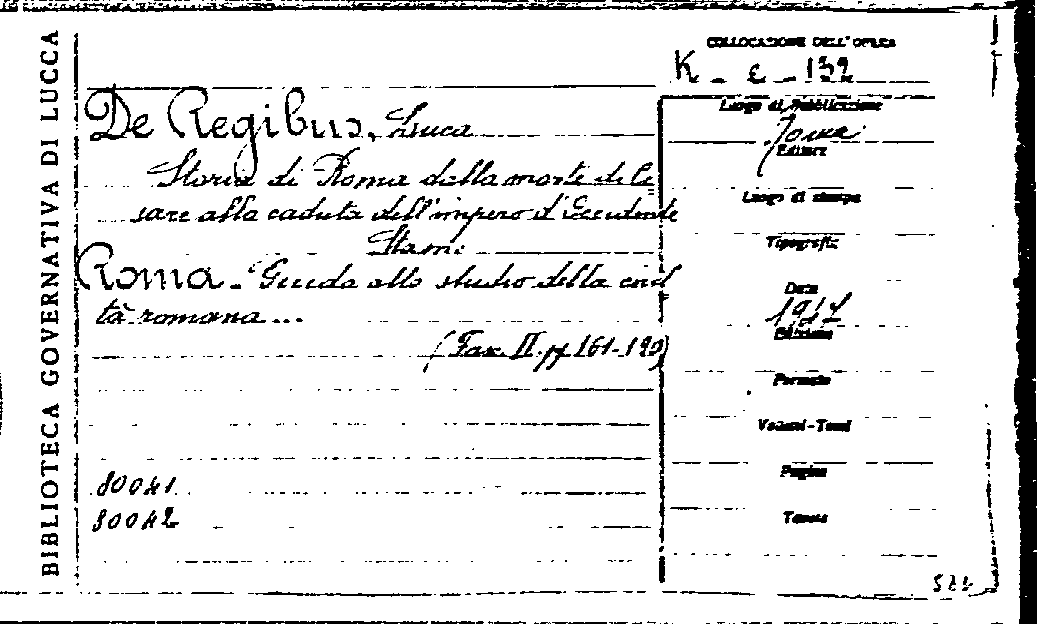 BIBLIOTECA GOVERNATIVA DI LUCCA
COLLOCAZIONE DELL'OPERA
K - c - 132
De Regibus, Luca
Storia di Roma dalla morte di Ce
sare alla caduta dell'impero d'Occidente
Roma - Guida allo studio della civil
tà romana ...
(Fasc. II. pp 161-190)
80041
80042
Luogo di Pubblicazione
Roma
Editore
Luogo di stampa
Tipografia
Data
Edizione
Formato
Volumi-Tomi
Pagine
Tavole